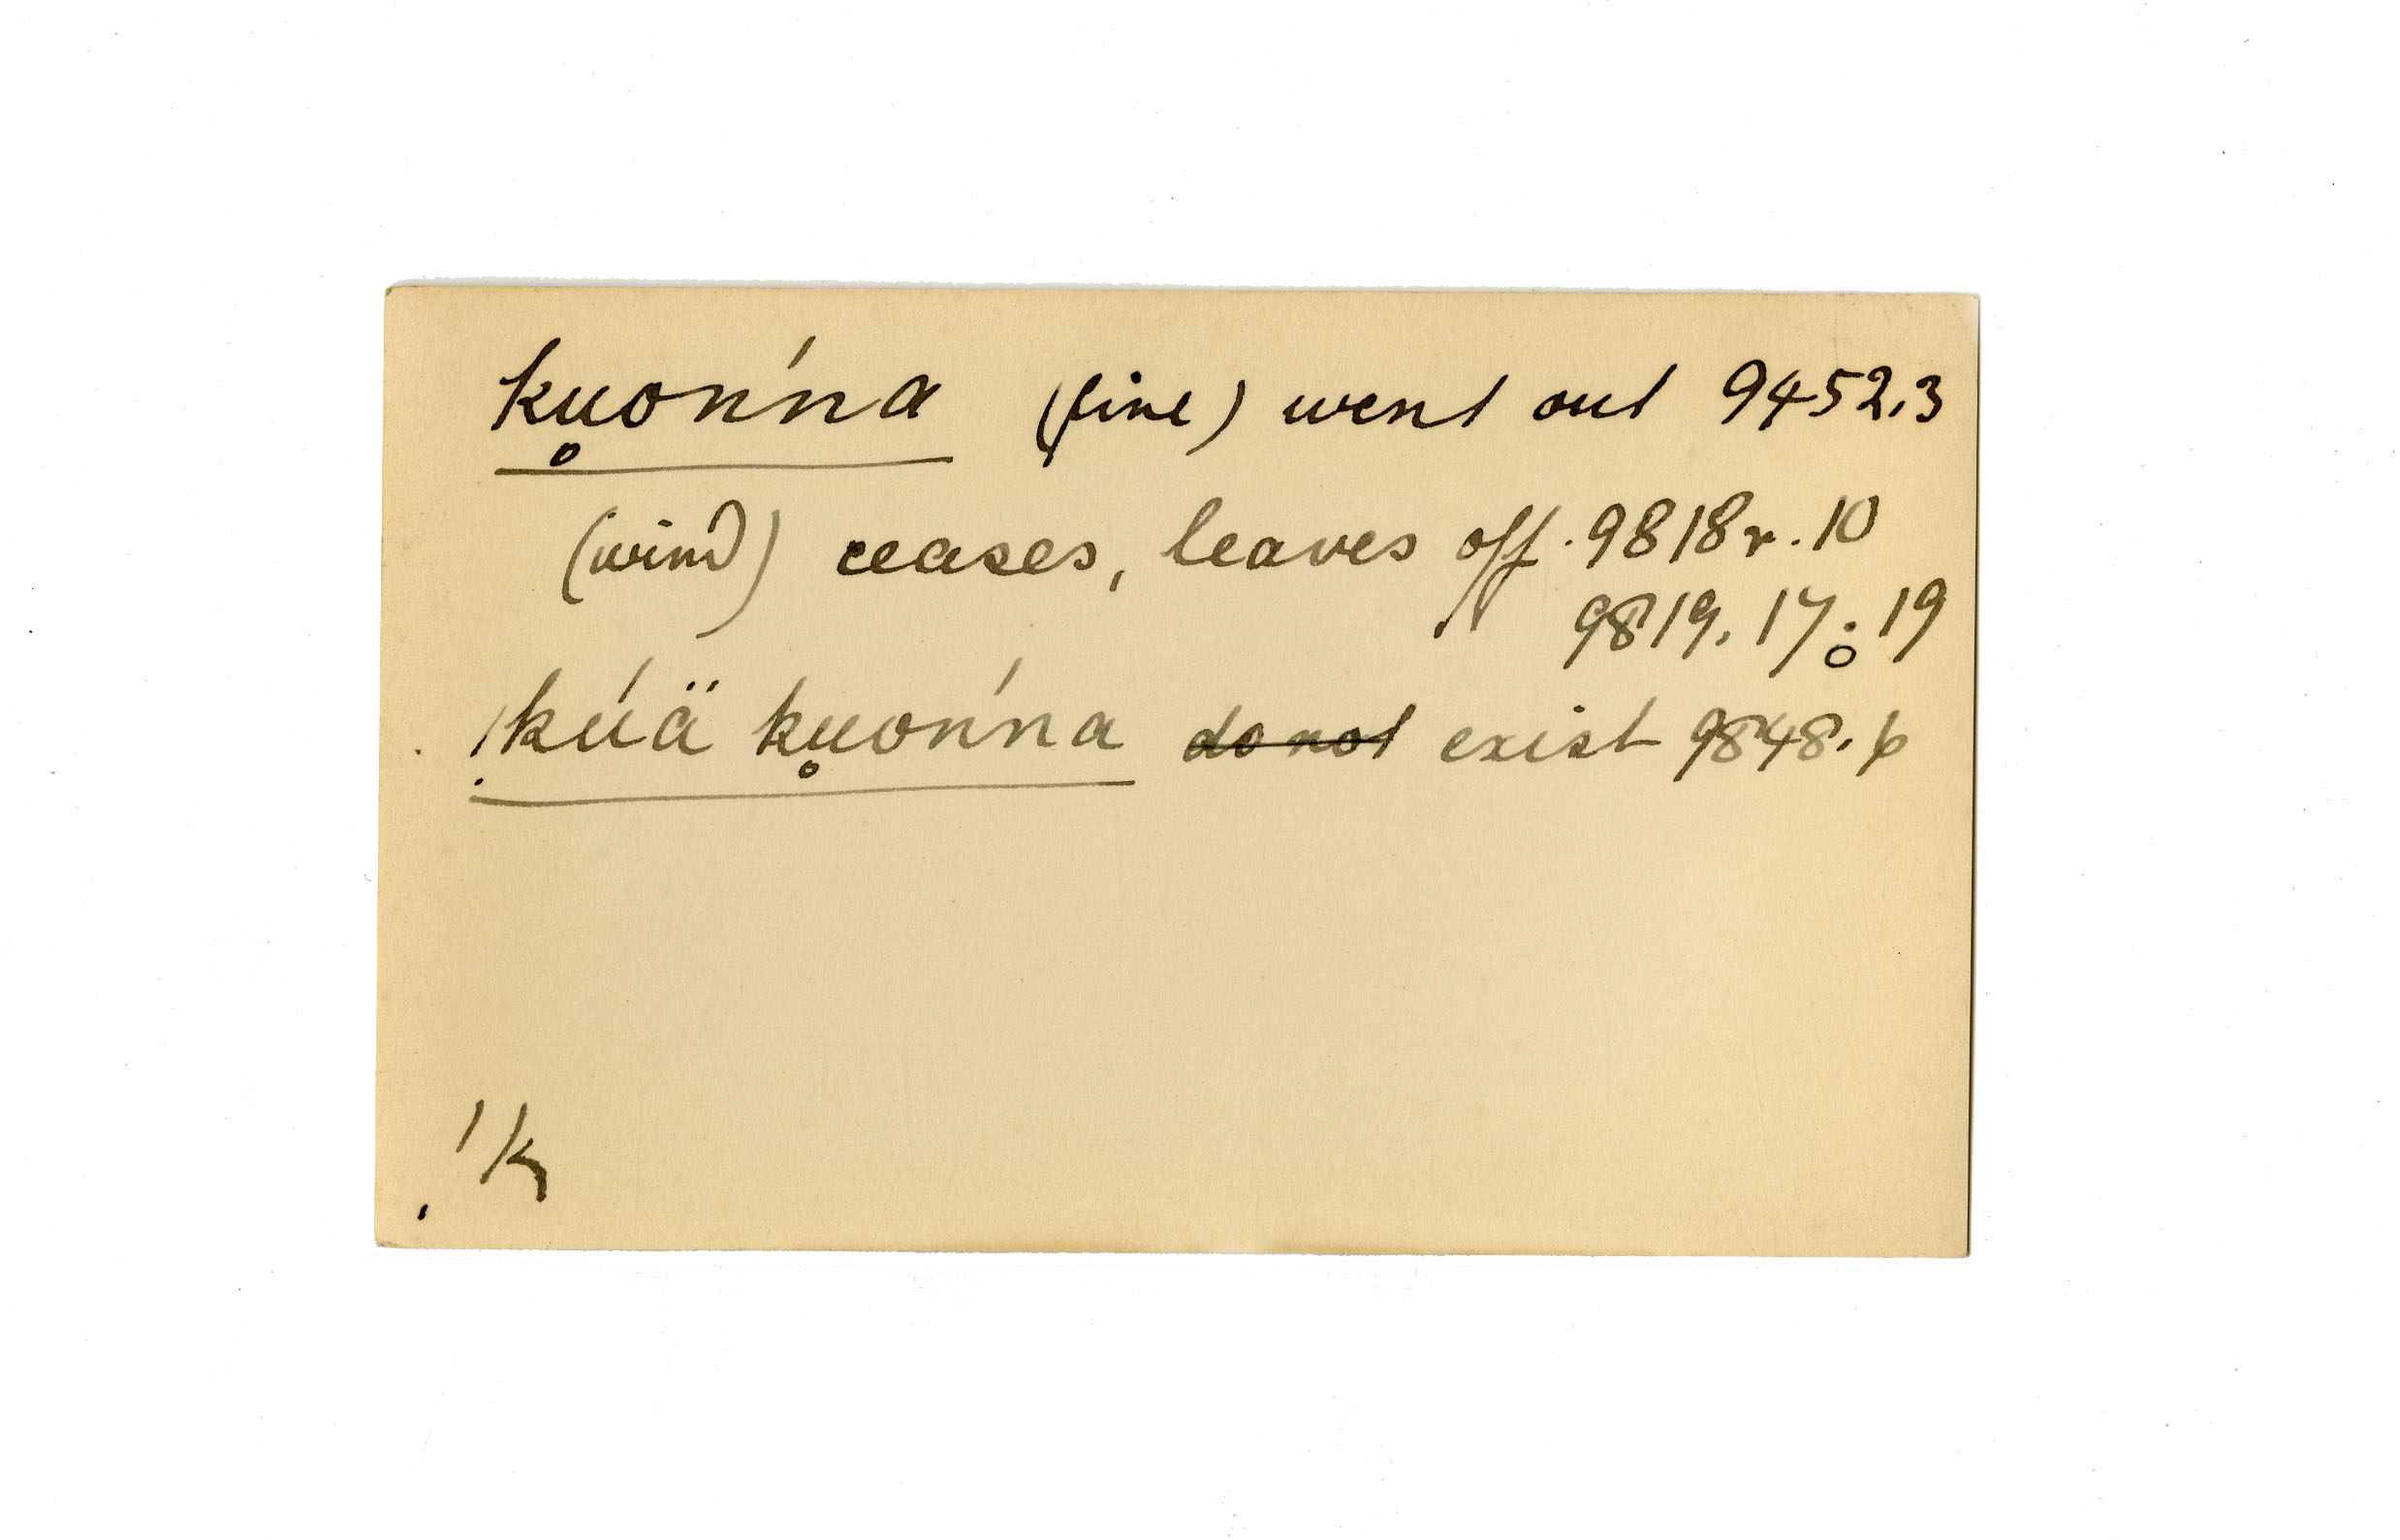 ku̥onńa (fire) went out 9452.3
(wind) ceases, leaves off. 9818r.10
9819.17 : 19
!kúä ku̥onńa ~~do not~~ exist 9848.6
!k